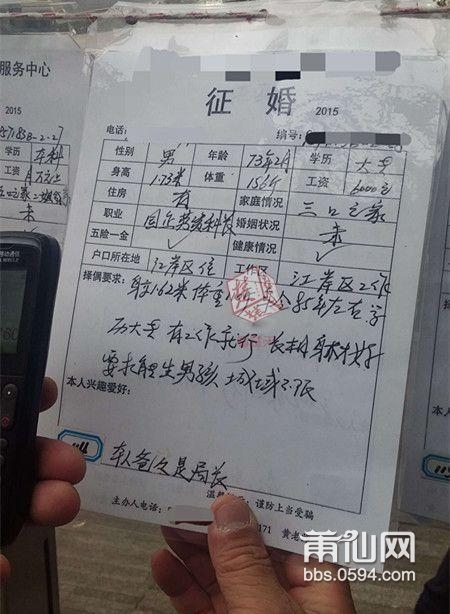 服务中心
2015
学历
工资
征 婚
2015
电话:
编号:
性别 男 年龄 73年2月 学历 大专
身高 1.73米 体重 156斤 工资 6000元
住房 有 家庭情况 三口之家
职业 婚姻状况 未
五险一金 ✓ 健康情况 ✓
户口所在地 江岸区住 工作区 江岸区工作
择偶要求: 身高1.62米 体重 85年左右 学
历大专 有工作就行 长相身材好
要求能生男孩 城域不限
本人兴趣爱好:
本人爸爸是局长
谨防上当受骗
主办人电话:
171 黄老
莆仙网
bbs.0594.com